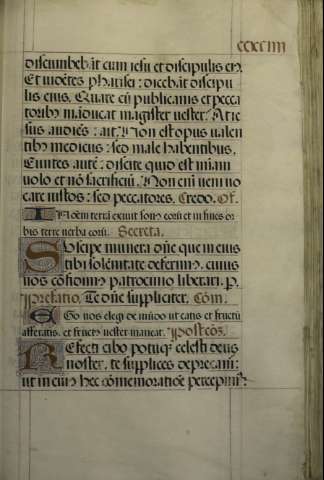 ccxciiii
discunbebāt cum iesu et discipulis eiꝰ.
Et vidētes pharisei: dicebāt discipu
lis eius. Quare cū publicanis et pecca
toribꝰ māducat magister vester. At ie
sus audiēs: ait. Non est opus valen
tibꝰ medicus: sed male habentibus.
Euntes autē: discite quid est miām
volo et nō sacrificiū. Non eni veni vo
care iustos: sed peccatores. Credo. Of.
In oem terrā exivit sonꝰ eorū et in fines or
bis terre verba eorū. Secreta.
Suscipe munera dn̄e que in eius
tibi solēnitate deferimꝰ. cuius
nos cōfidimꝰ patrocinio liberari. p.
Prefatio. Te dn̄e suppliciter. Cōm.
Ego vos elegi de mūdo ut eatis et fructū
afferatis. et fructꝰ vester maneat. Postcōɜ.
Refecti cibo potuqꝫ celesti deus
noster. te supplices deprecam̄:
ut in cuiꝰ hec cōmemoratiōe percepimꝰ.